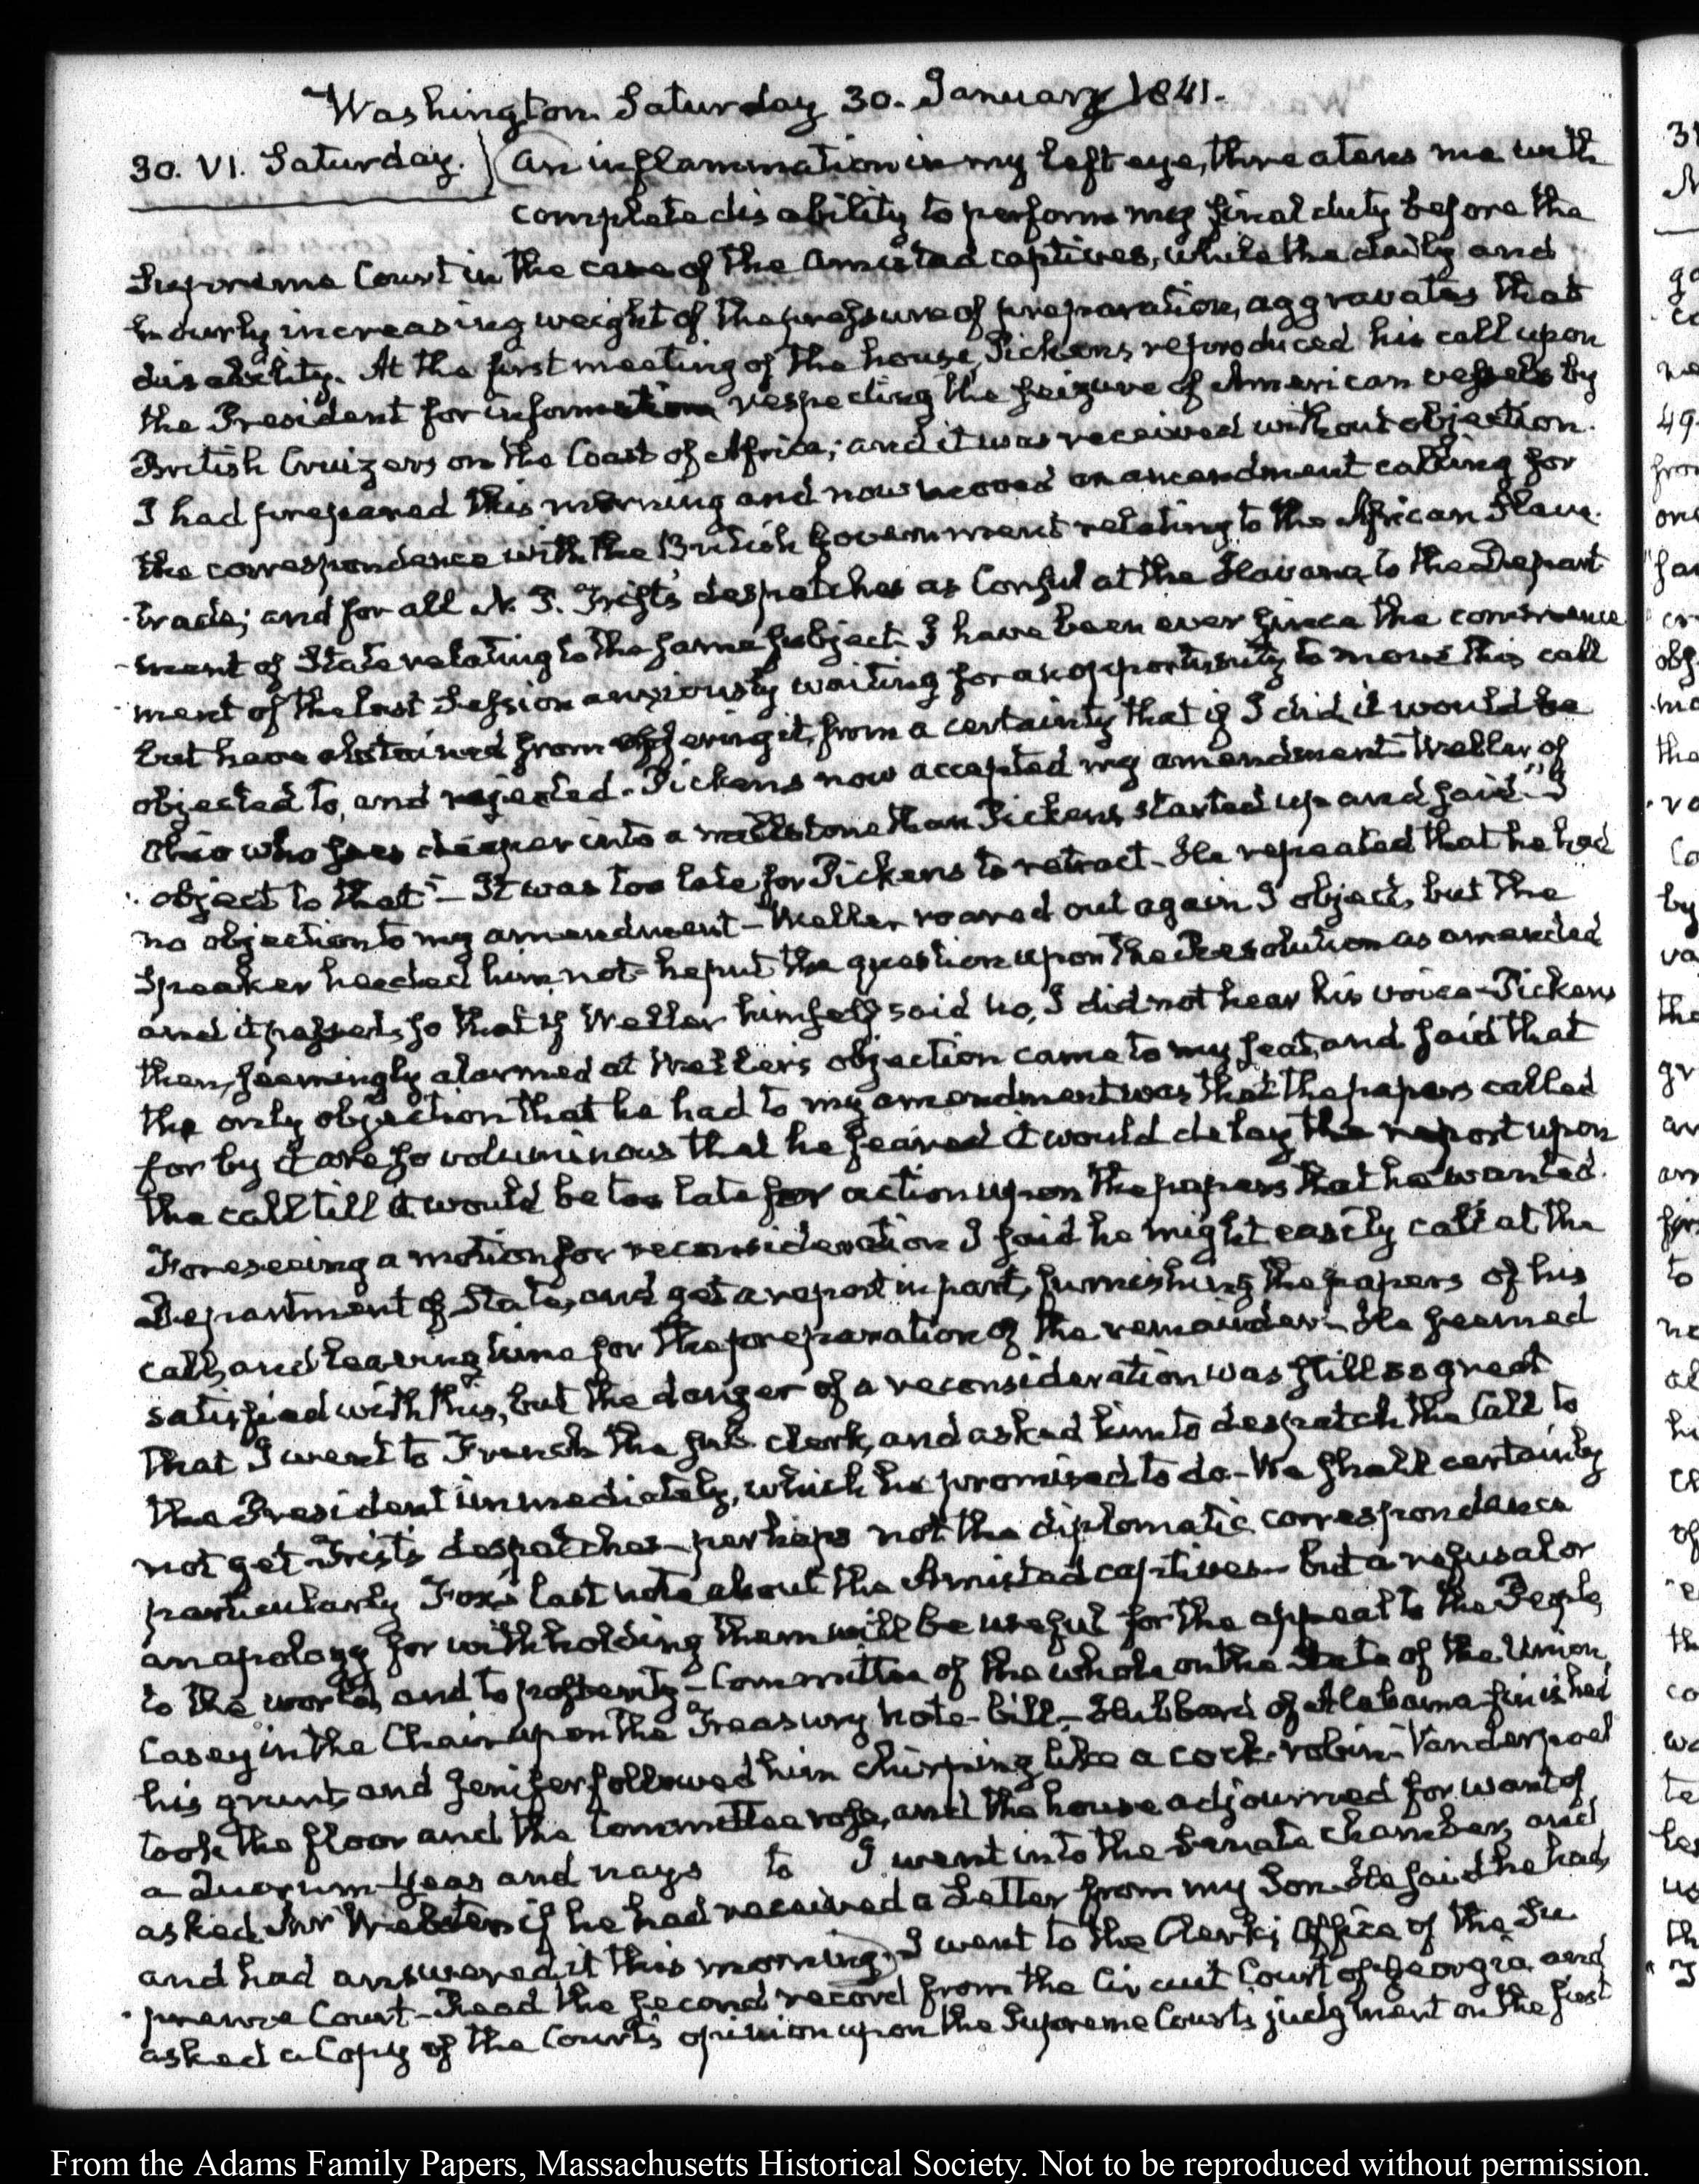 Washington Saturday 30. January 1841.
30. VI. Saturday. An inflammation in my left eye, threatens me with
complete disability to perform my final duty before the
Supreme Court in the case of the Amistad captives, while the daily and
hourly increasing weight of the pressure of preparation, aggravates that
disability. At the first meeting of the house, Pickens reproduced his call upon
the President for information respecting the seizure of American vessels by
British Cruizers on the Coast of Africa; and it was received without objection.
I had prepared this morning and now moved an amendment calling for
the correspondence with the British Government relating to the African Slave-
trade; and for all N. P. Trist's despatches as Consul at the Havana to the Depart
-ment of State relating to the same subject. I have been ever since the commence
ment of the last Session anxiously waiting for an opportunity to move this call
but have abstained from offering it, from a certainty that if I did it would be
objected to, and rejected. Pickens now accepted my amendment. Weller of
Ohio who sees deeper into a millstone than Pickens, started up and said "I
object to that" - It was too late for Pickens to retract - He repeated that he had
no objection to my amendment - Weller roared out again I object, but the
Speaker heeded him not - he put the question upon the Resolution as amended
and it passed, so that if Weller himself said no, I did not hear his voice - Pickens
then, seemingly alarmed at Weller's objection came to my seat, and said that
the only objection that he had to my amendment was that the papers called
for by it are so voluminous that he feared it would delay the report upon
the call till it would be too late for action upon the papers that he wanted.
Foreseeing a motion for reconsideration I said he might easily call at the
Department of State, and get a report in part, furnishing the papers of his
call, and leaving time for the preparation of the remainder - He seemed
satisfied with this, but the danger of a reconsideration was still so great
that I went to French the sub. clerk, and asked him to despatch the Call to
the President immediately, which he promised to do - We shall certainly
not get Trist's despatches - perhaps not the diplomatic correspondence
particularly Fox's last note about the Amistad captives - but a refusal or
an apology for withholding them will be useful for the appeal to the People,
to the world, and to posterity - Committee of the whole on the State of the Union,
Casey in the Chair upon the Treasury note-bill - Hubbard of Alabama finished
his grunt, and Jenifer followed him chirping like a cock-robin - Vanderpoel
took the floor and the Committee rose, and the house adjourned for want of
a Quorum - Yeas and nays to I went into the Senate chamber, and
asked Mr Webster if he had received a Letter from my Son - He said he had,
and had answered it this morning. I went to the Clerk's Office of the Su
-preme Court - Read the second record from the Circuit Court of Georgia and
asked a Copy of the Court's opinion upon the Supreme Court's judgment on the first
From the Adams Family Papers, Massachusetts Historical Society. Not to be reproduced without permission.